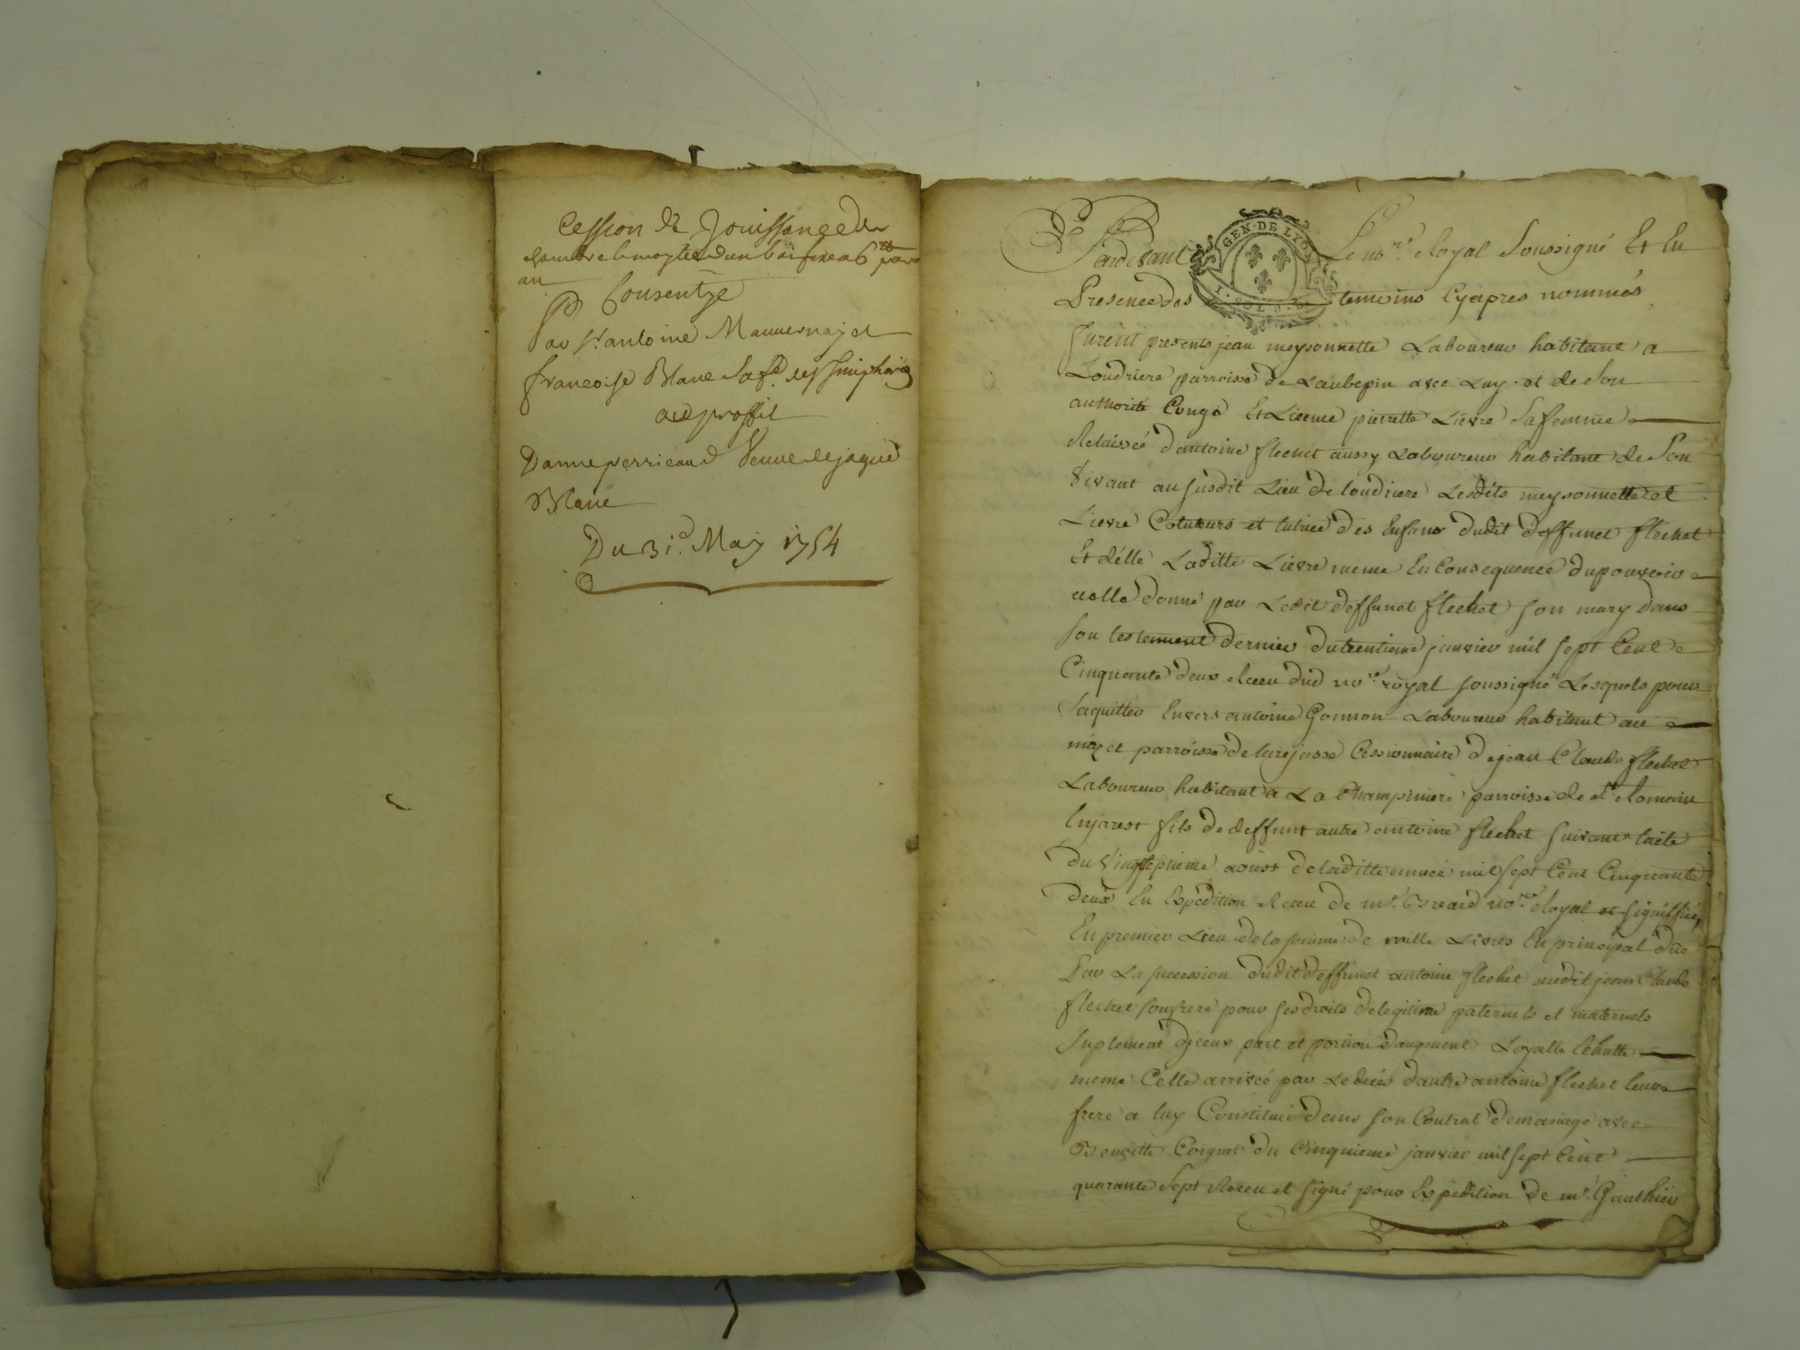 Cession de Jouissance de
chambre & moytie d'un bois fixe a 6 tt par
an
Consentye
Par st antoine Mauvernay et
francoise Blanc sa fe de st Simphorien
au proffit
D'anne perricaud Veuve de jaque
Blanc
Du 31e May 1754
GEN. DE LYON
Pardevant Le nore Royal Soussigné Et En
Presence des temoins Cyapres nommés
Furent presents jean meysonnette Laboureur habitant a
Loudriere parroisse de Laubepin avec Luy et de Son
authorité Congé Et Licence pierrette Lievre Sa femme
Relaissée d'antoine flechet aussy Laboureur habitant de Son
Vivant au susdit Lieu de loudriere Lesdits meysonnette et
Lievre Cotuteurs et tutrice des Enfans dudit deffunct flechet
Et d'elle Laditte Lievre meme En Consequence du pouvoir
a elle donné par Ledit deffunct flechet son mary dans
son testement dernier du trentieme janvier mil sept Cent
Cinquante deux Receu dud nore royal soussigné Lesquels pour
s'aquitter Envers antoine Gonnon Laboureur habitant au
mazet parroisse de larajasse Cessionnaire de jean Claude flechet
Laboureur habitant a La Champiniere parroisse de st Romain
En jarest fils de deffunt autre antoine flechet suivant l'acte
du Vingtseptieme aoust de laditte année mil sept Cent Cinquante
deux En Expedition Receu de mr Grand nore Royal et signiffié,
En premier Lieu de la somme de mille Livres En principal düe
Par La succession dudit deffunct antoine flechet audit jean Claude
flechet son frere pour ses droits de legitime paternels et maternels
Suplement d'jceux part et portion d'augment Loyalle Echutte
meme Celle arrivée par Le decés d'autre antoine flechet leur
frere a luy Constitué dans son Contrat de mariage avec
Benoitte Coignet du Cinquieme janvier mil sept Cent
quarante Sept Receu et signé pour Expedition de mr Gauthier